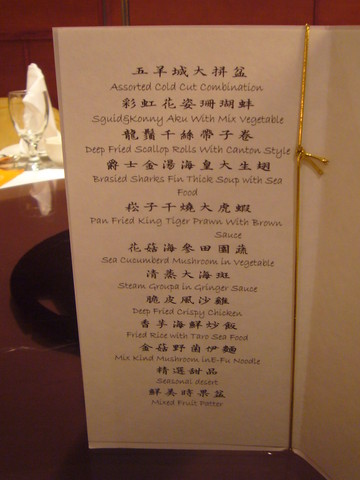 五羊城大拼盆
Assorted Cold Cut Combination
彩虹花姿珊瑚蚌
Squid&Konny Aku With Mix Vegetable
龍鬚千絲帶子卷
Deep Fried Scallop Rolls With Canton Style
爵士金湯海皇大生翅
Brasied Sharks Fin Thick Soup with Sea
Food
崧子干燒大虎蝦
Pan Fried King Tiger Prawn With Brown
Sauce
花菇海參田園蔬
Sea Cucumberd Mushroom in Vegetable
清蒸大海斑
Steam Groupa in Gringer Sauce
脆皮風沙雞
Deep Fried Crispy Chicken
香芋海鮮炒飯
Fried Rice with Taro Sea Food
金菇野菌伊麵
Mix Kind Mushroom inE-Fu Noodle
精選甜品
Seasonal desert
鮮美時果盆
Mixed Fruit Patter